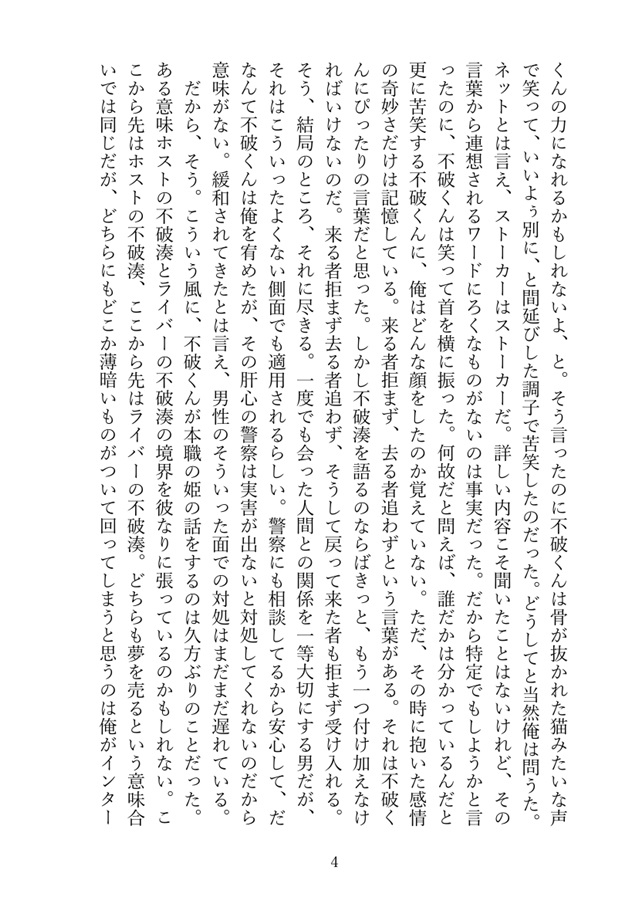 くんの力になれるかもしれないよ、と。そう言ったのに不破くんは骨が抜かれた猫みたいな声
で笑って、いいよぅ別に、と間延びした調子で苦笑したのだった。どうしてと当然俺は問うた。
ネットとは言え、ストーカーはストーカーだ。詳しい内容こそ聞いたことはないけれど、その
言葉から連想されるワードにろくなものがないのは事実だった。だから特定でもしようかと言
ったのに、不破くんは笑って首を横に振った。何故だと問えば、誰だかは分かっているんだと
更に苦笑する不破くんに、俺はどんな顔をしたのか覚えていない。ただ、その時に抱いた感情
の奇妙さだけは記憶している。来る者拒まず、去る者追わずという言葉がある。それは不破く
んにぴったりの言葉だと思った。しかし不破湊を語るのならばきっと、もう一つ付け加えなけ
ればいけないのだ。来る者拒まず去る者追わず、そうして戻って来た者も拒まず受け入れる。
そう、結局のところ、それに尽きる。一度でも会った人間との関係を一等大切にする男だが、
それはこういったよくない側面でも適用されるらしい。警察にも相談してるから安心して、だ
なんて不破くんは俺を宥めたが、その肝心の警察は実害が出ないと対処してくれないのだから
意味がない。緩和されてきたとは言え、男性のそういった面での対処はまだまだ遅れている。
だから、そう。こういう風に、不破くんが本職の姫の話をするのは久方ぶりのことだった。
ある意味ホストの不破湊とライバーの不破湊の境界を彼なりに張っているのかもしれない。こ
こから先はホストの不破湊、ここから先はライバーの不破湊。どちらも夢を売るという意味合
いでは同じだが、どちらにもどこか薄暗いものがついて回ってしまうと思うのは俺がインター
4